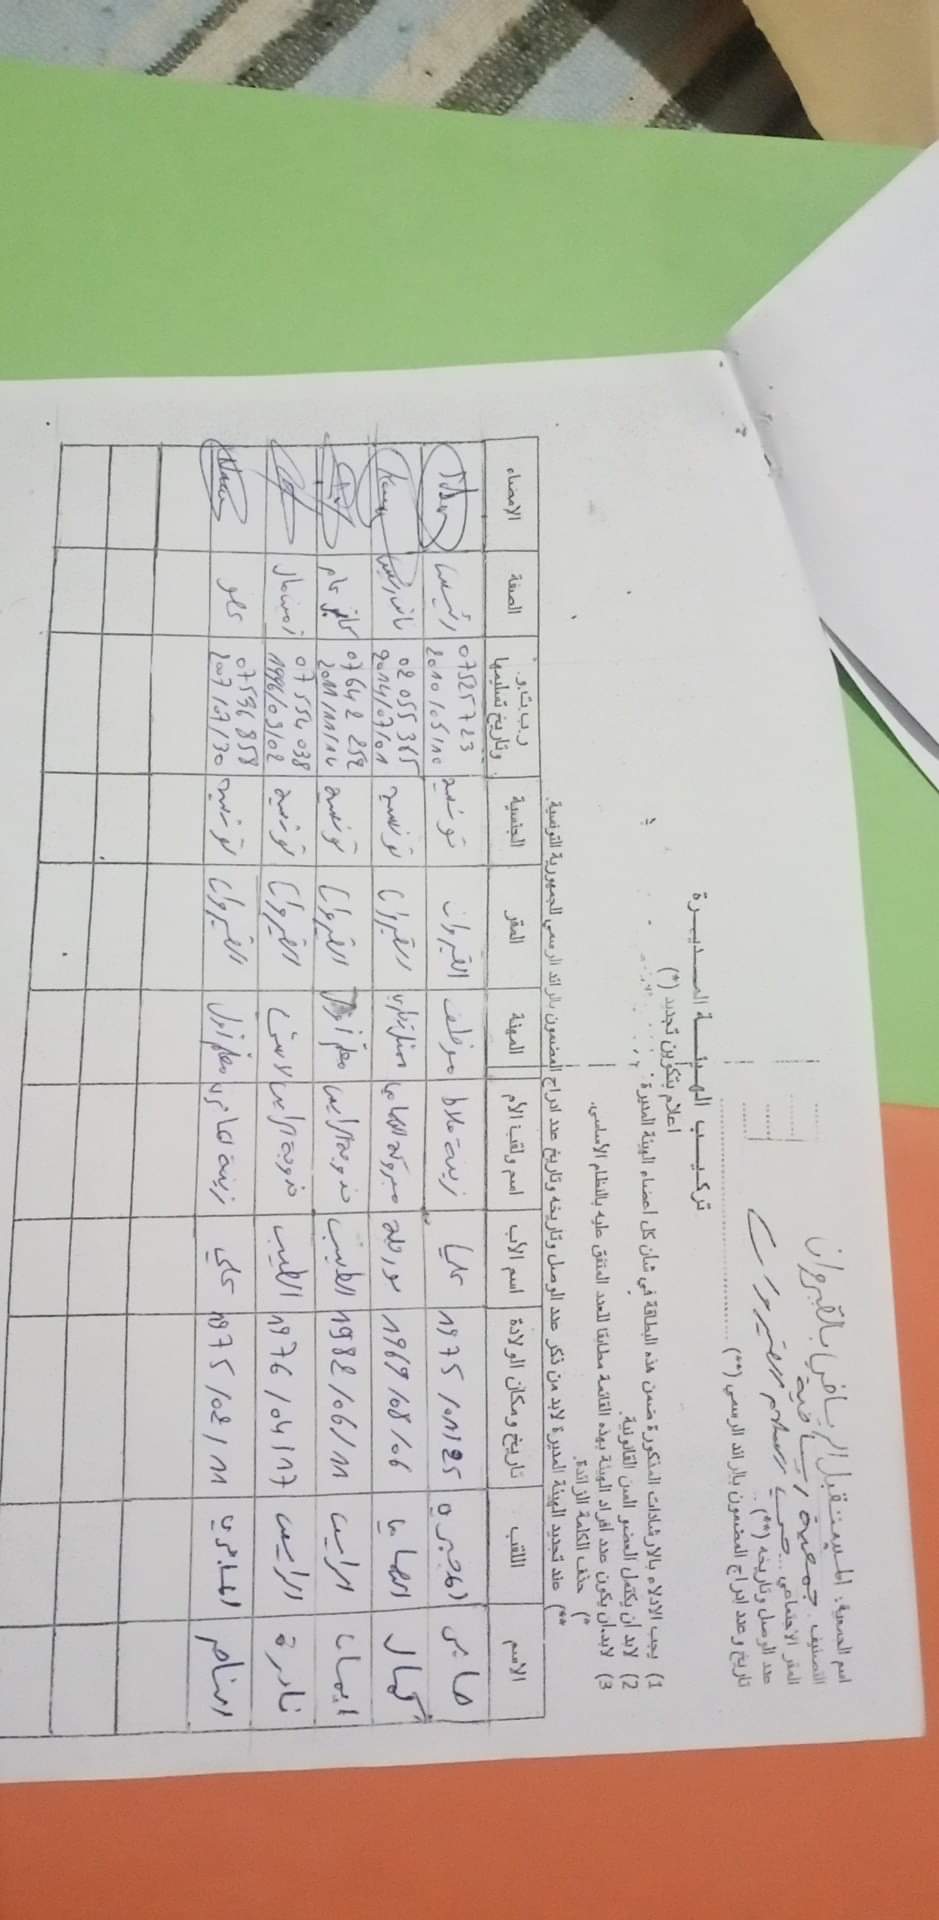 اسم الجمعية: المستقبل الرياضي بالقيروان
التصنيف: جمعية رياضية
المقر الاجتماعي: حي
عدد الوصل وتاريخه (**)
تاريخ وعدد إدراج المضمون بالرائد الرسمي (**)
تركيب الهيئة المديرة
اعلام بتكوين تجديد (*)
1) يجب الادلاء بالارشادات المذكورة ضمن هذه البطاقة في شأن كل أعضاء الهيئة المديرة.
2) لابد أن يكتمل العضو السن القانونية.
3) لابد أن يكون عدد أفراد الهيئة بهذه القائمة مطابقا للعدد المتفق عليه بالنظام الأساسي.
*) حذف الكلمة الزائدة.
**) عند تجديد الهيئة المديرة لابد من ذكر عدد الوصل وتاريخه وتاريخ عدد ادراج المضمون بالرائد الرسمي للجمهورية التونسية.
الاسم اللقب تاريخ ومكان الولادة اسم الأب اسم ولقب الأم المهنة المقر الجنسية ر.ب.ت.و. وتاريخ تسليمها الصفة الامضاء
صابر 1975/01/25 زينة موظف القيروان تونسية 07525723 2010/05/10 رئيس
كمال 1969/08/06 مبروكة القيروان تونسية 02055365 2014/07/01 نائب رئيس
ايمان الرايس 1982/06/11 الطيب خدوجة الرايس معلم أول القيروان تونسية 07642252 2011/11/14 كاتب عام
نادرة الرايس 1976/04/17 الطيب خدوجة الرايس القيروان تونسية 07554038 1996/09/02 أمين مال
1975/02/11 علي زينة معلم أول القيروان تونسية 07536858 2007/07/30 عضو